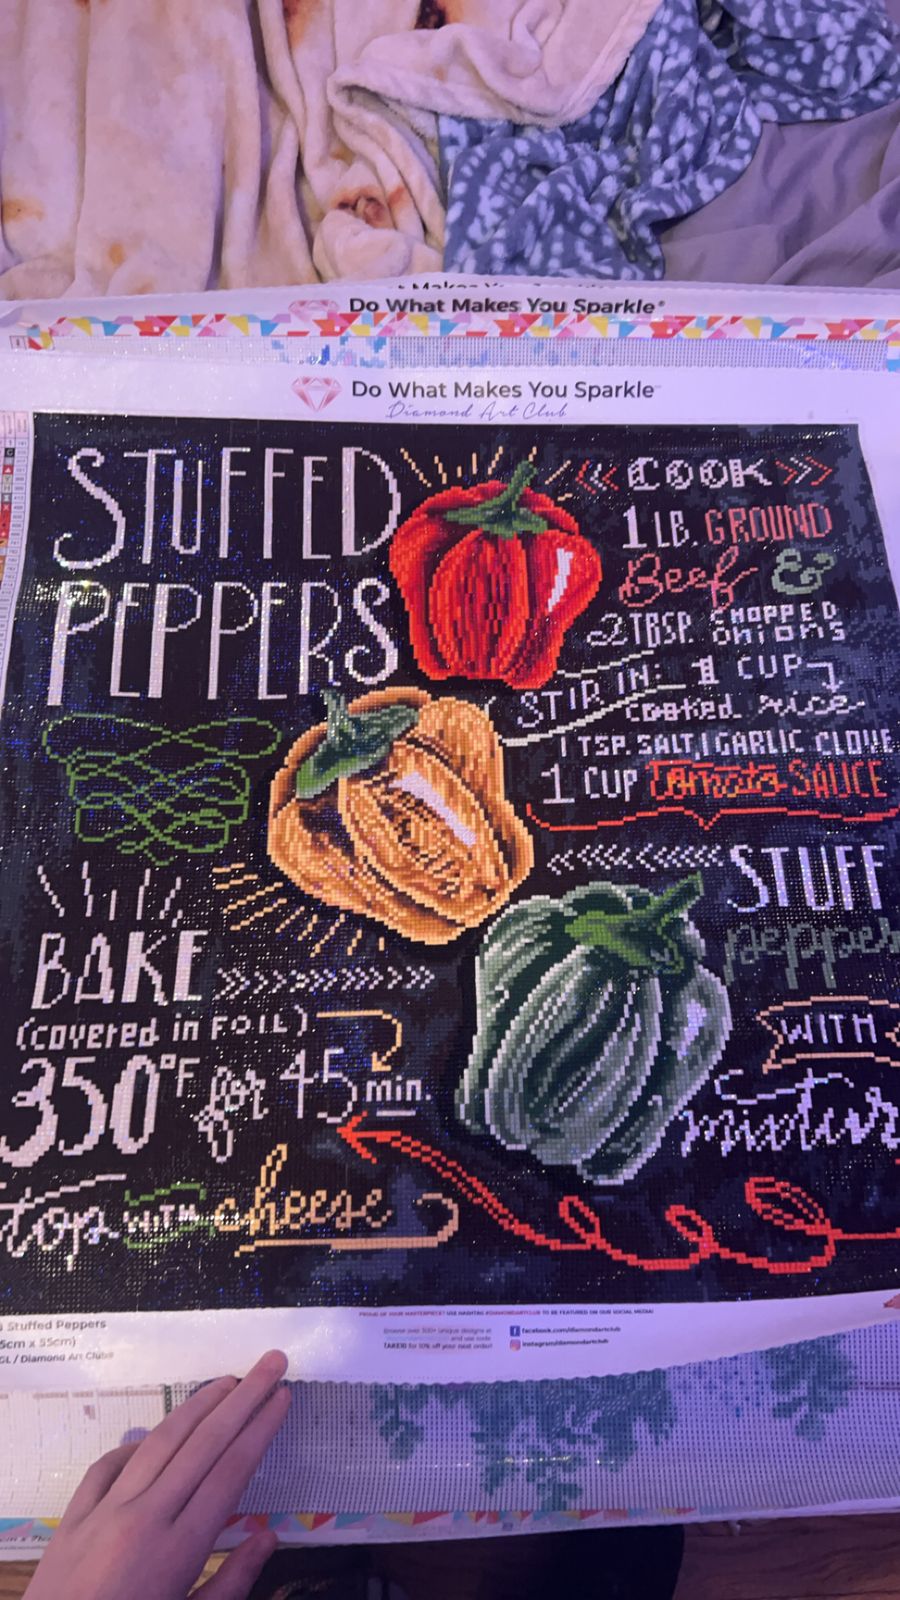 Do What Makes You Sparkle®
Do What Makes You Sparkle™
Diamond Art Club
STUFFED
PEPPERS
« COOK »
1 LB. GROUND
Beef &
2 TBSP. CHOPPED
ONIONS
STIR IN: 1 CUP
cooked rice
1 TSP. SALT, 1 GARLIC CLOVE
1 CUP Tomato SAUCE
STUFF
pepper
WITH
mixture
BAKE
(covered in FOIL)
350°F for 45 min.
top WITH cheese
Stuffed Peppers
5cm x 55cm)
GL / Diamond Art Club®
PROUD OF YOUR MASTERPIECE? USE HASHTAG #DIAMONDARTCLUB TO BE FEATURED ON OUR SOCIAL MEDIA!
Browse over 500+ unique designs at
and use code
TAKE10 for 10% off your next order!
facebook.com/diamondartclub
instagram/diamondartclub